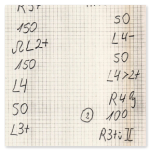 R3+
150
ΩL2+
150
L4
50
L3+
50
L4-
50
L4>2+
R4g
② 100
R3+i II